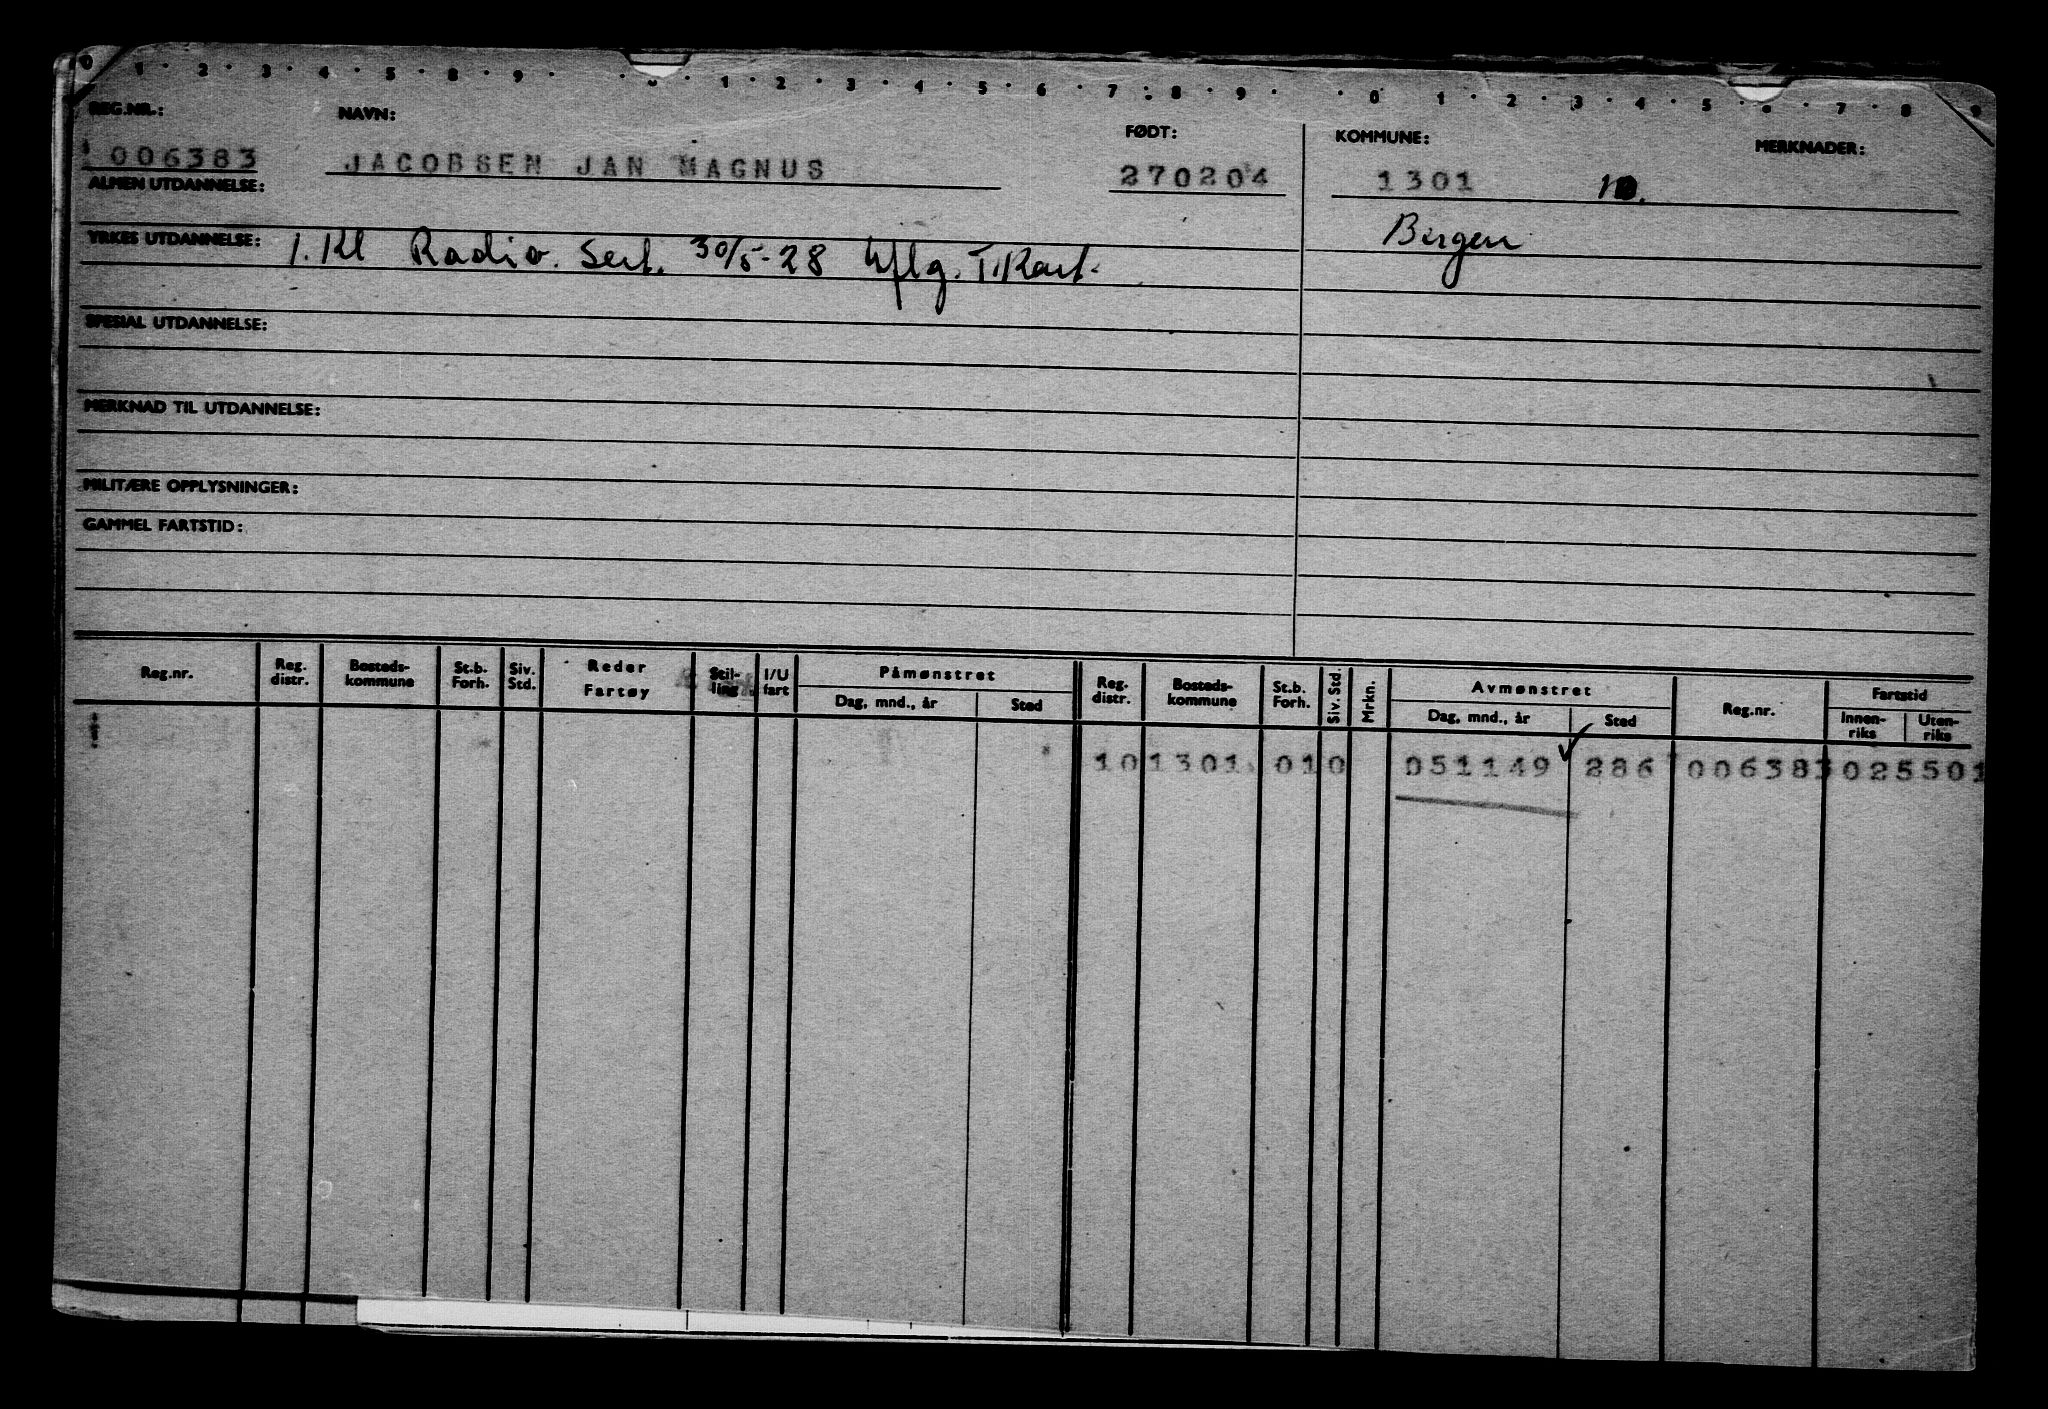 0 1 2 3 4 5 8 9 0 1 2 3 4 5 6 7 8 9 0 1 2 3 4 5 6 7 8 9
REG.NR.: NAVN: FØDT: KOMMUNE: MERKNADER:
006383 JACOBSEN JAN MAGNUS 270204 1301
ALMEN UTDANNELSE:
Bergen
YRKES UTDANNELSE: 1. Kl Radio. Sert. 30/5-28 Uflg. T.Kart.
SPESIAL UTDANNELSE:
MERKNAD TIL UTDANNELSE:
MILITÆRE OPPLYSNINGER:
GAMMEL FARTSTID:
Reg.nr. Reg. distr. Bosteds- kommune St.b. Forh. Siv. Std. Reder Fartøy Stil- ling I/U fart Påmønstret Dag, mnd., år Sted Reg. distr. Bosteds- kommune St.b. Forh. Siv. Std. Mrkn. Avmønstret Dag, mnd., år Sted Reg.nr. Fartstid Innen- riks Uten- riks
10 1301 01 0 051149 286 006383 025501